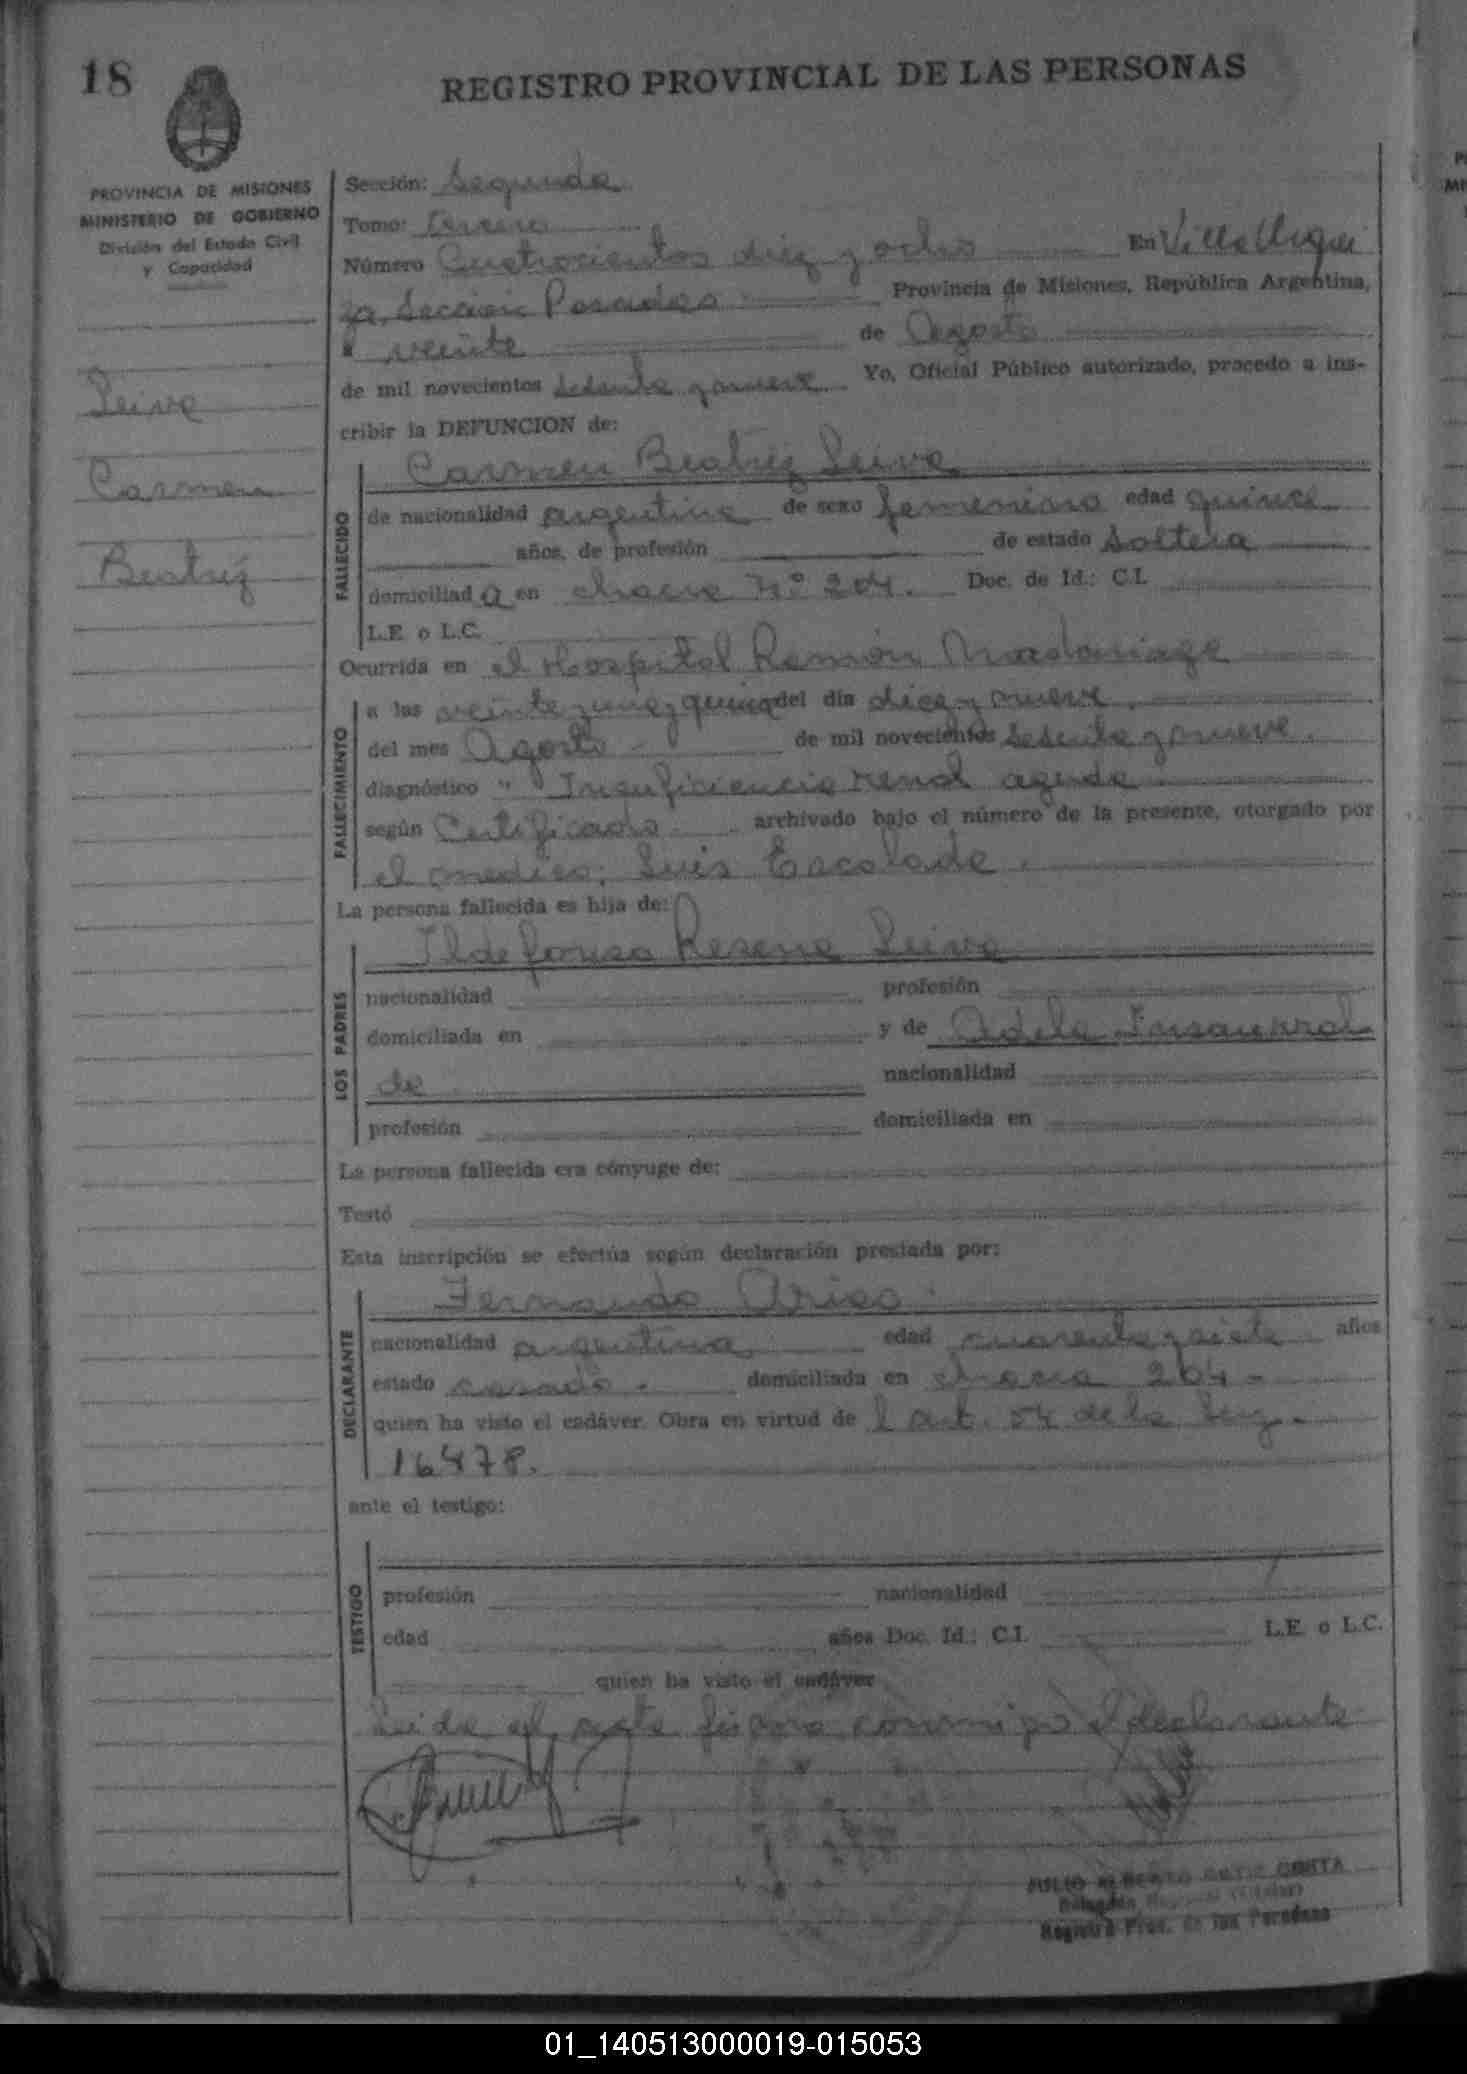 18
REGISTRO PROVINCIAL DE LAS PERSONAS
PROVINCIA DE MISIONES
MINISTERIO DE GOBIERNO
División del Estado Civil
y Capacidad
Leiva
Carmen
Beatriz
Sección: Segunda
Tomo: Tercero
Número Cuatrocientos diez y ocho En Villa Urqui
za, Sección Posadas Provincia de Misiones, República Argentina,
a veinte de Agosto
de mil novecientos sesenta y nueve Yo, Oficial Público autorizado, procedo a ins-
cribir la DEFUNCION de:
Carmen Beatriz Leiva
FALLECIDO
de nacionalidad argentina de sexo femenino edad quince
años, de profesión de estado Soltera
domiciliad a en chacra Nº 204. Doc. de Id.: C.I.
L.E. o L.C.
Ocurrida en el Hospital Ramón Madariaga
FALLECIMIENTO
a las veinte y una y quince del día diez y nueve
del mes Agosto de mil novecientos sesenta y nueve.
diagnóstico " Insuficiencia renal aguda
según Certificado archivado bajo el número de la presente, otorgado por
el medico: Luis Escalada.
La persona fallecida es hija de:
Ildefonso Leiva
LOS PADRES
nacionalidad profesión
domiciliada en y de Adela Insaurral
de nacionalidad
profesión domiciliada en
La persona fallecida era cónyuge de:
Testó
Esta inscripción se efectúa según declaración prestada por:
Fernando
DECLARANTE
nacionalidad argentina edad cuarenta y siete años
estado casado. domiciliada en chacra 204.
quien ha visto el cadáver. Obra en virtud de l art. 54 de la Ley.
16478.
ante el testigo:
TESTIGO
profesión nacionalidad
edad años Doc. Id.: C.I. L.E. o L.C.
quien ha visto el cadáver
Leida el acta firma conmigo el declarante
JULIO ALBERTO
Registro Prov. de las Personas
01_140513000019-015053